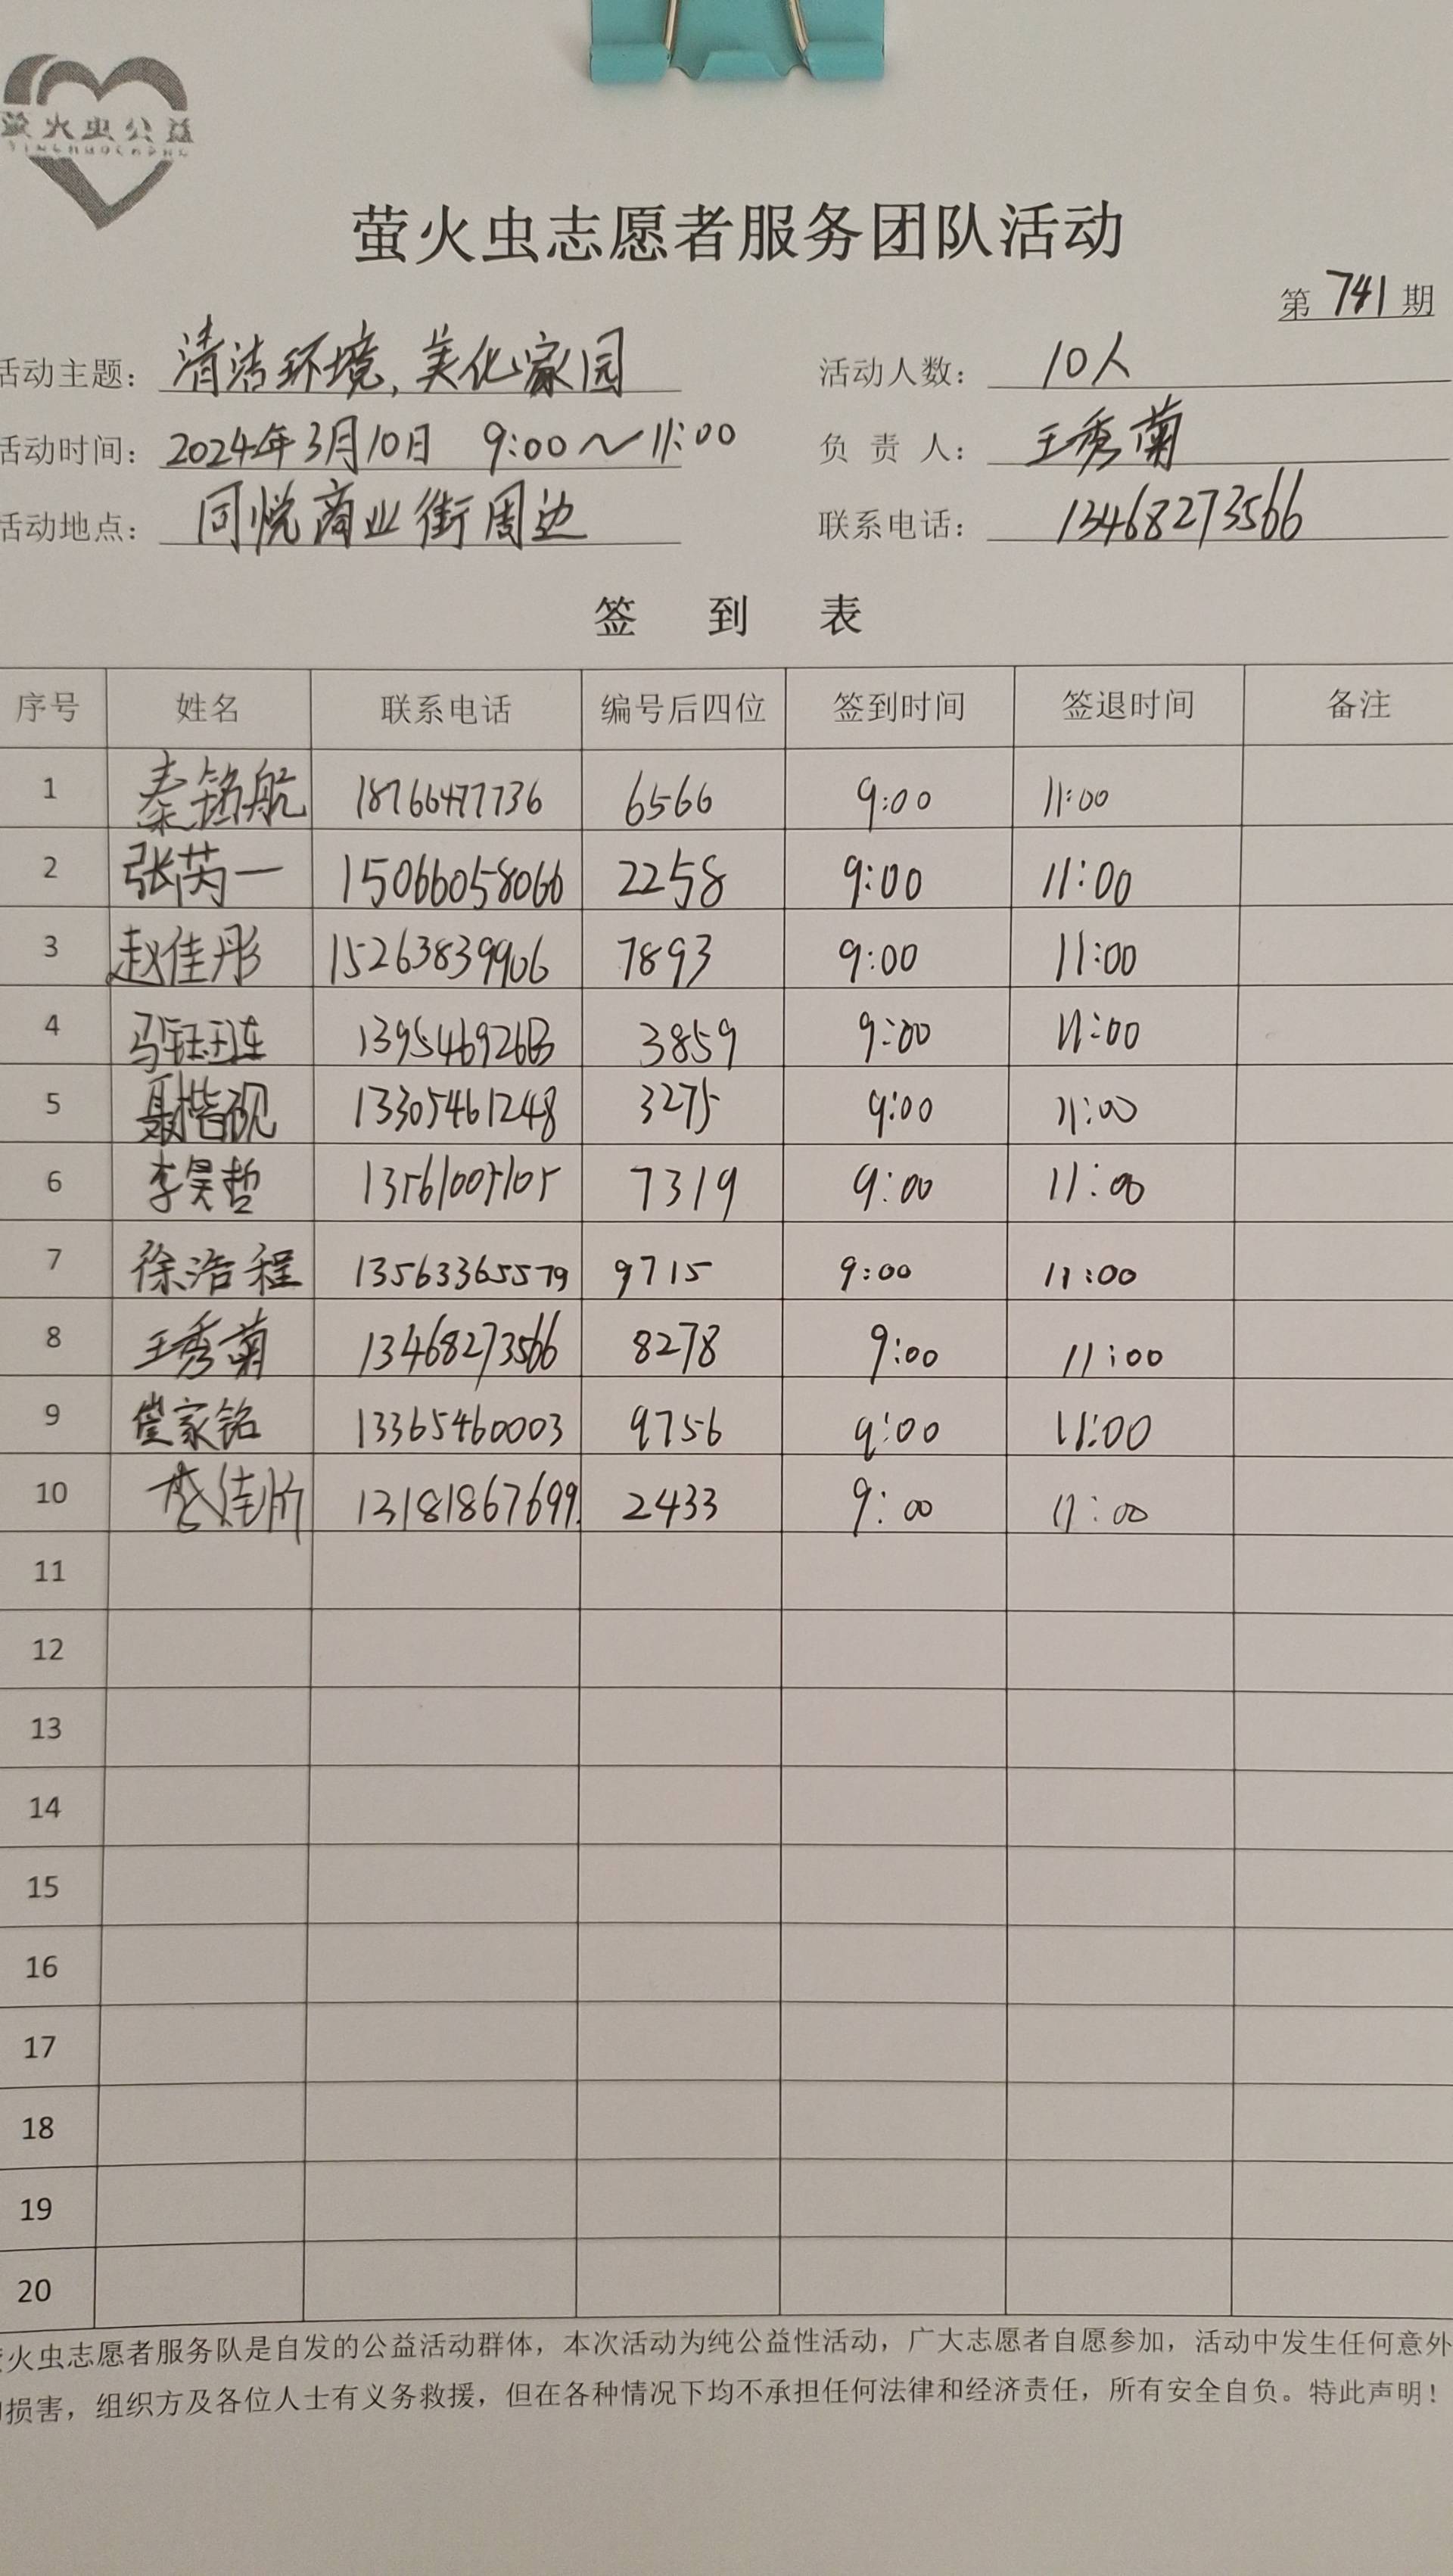 萤火虫公益
YINGHUOCHONG
萤火虫志愿者服务团队活动
第 741 期
活动主题： 清洁环境，美化家园 活动人数： 10人
活动时间： 2024年3月10日 9:00～11:00 负 责 人： 王秀菊
活动地点： 同悦商业街周边 联系电话： 13468273566
签 到 表
序号 姓名 联系电话 编号后四位 签到时间 签退时间 备注
1 秦铭航 18766477736 6566 9:00 11:00
2 张芮一 15066058066 2258 9:00 11:00
3 赵佳彤 15263839906 7893 9:00 11:00
4 马钰琏 3859 9:00 11:00
5 聂楷砚 13305461248 3275 9:00 11:00
6 李昊哲 13561005105 7319 9:00 11:00
7 徐浩程 13563365579 9715 9:00 11:00
8 王秀菊 13468273566 8278 9:00 11:00
9 崔家铭 13365460003 9756 9:00 11:00
10 13181867699 2433 9:00 11:00
11
12
13
14
15
16
17
18
19
20
火虫志愿者服务队是自发的公益活动群体，本次活动为纯公益性活动，广大志愿者自愿参加，活动中发生任何意外
损害，组织方及各位人士有义务救援，但在各种情况下均不承担任何法律和经济责任，所有安全自负。特此声明！